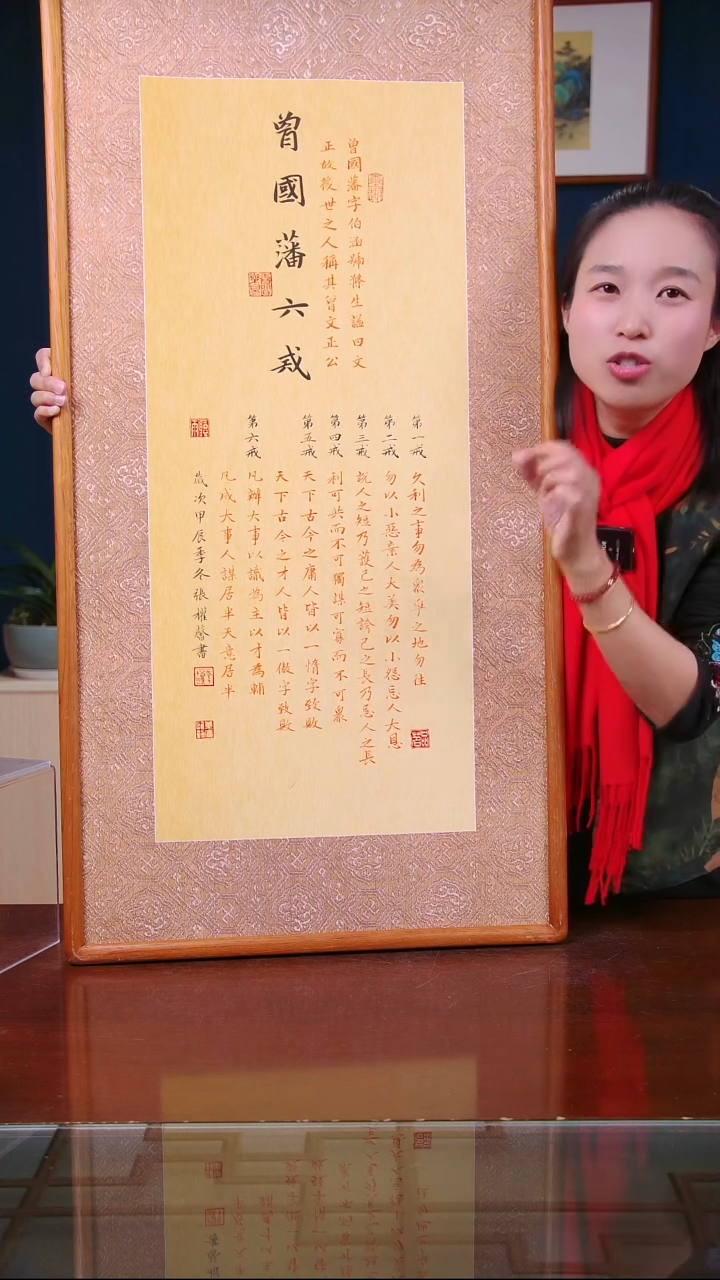 曾國藩六戒
曾國藩字伯涵號滌生謚曰文
正故後世之人稱其曾文正公
第一戒 久利之事勿為眾爭之地勿往
第二戒 勿以小惡棄人大美勿以小怨忘人大恩
第三戒 說人之短乃護己之短誇己之長乃忌人之長
第四戒 利可共而不可獨謀可寡而不可眾
第五戒 天下古今之庸人皆以一惰字致敗
天下古今之才人皆以一傲字致敗
第六戒 凡辦大事以識為主以才為輔
凡成大事人謀居半天意居半
歲次甲辰季冬張耀馨書